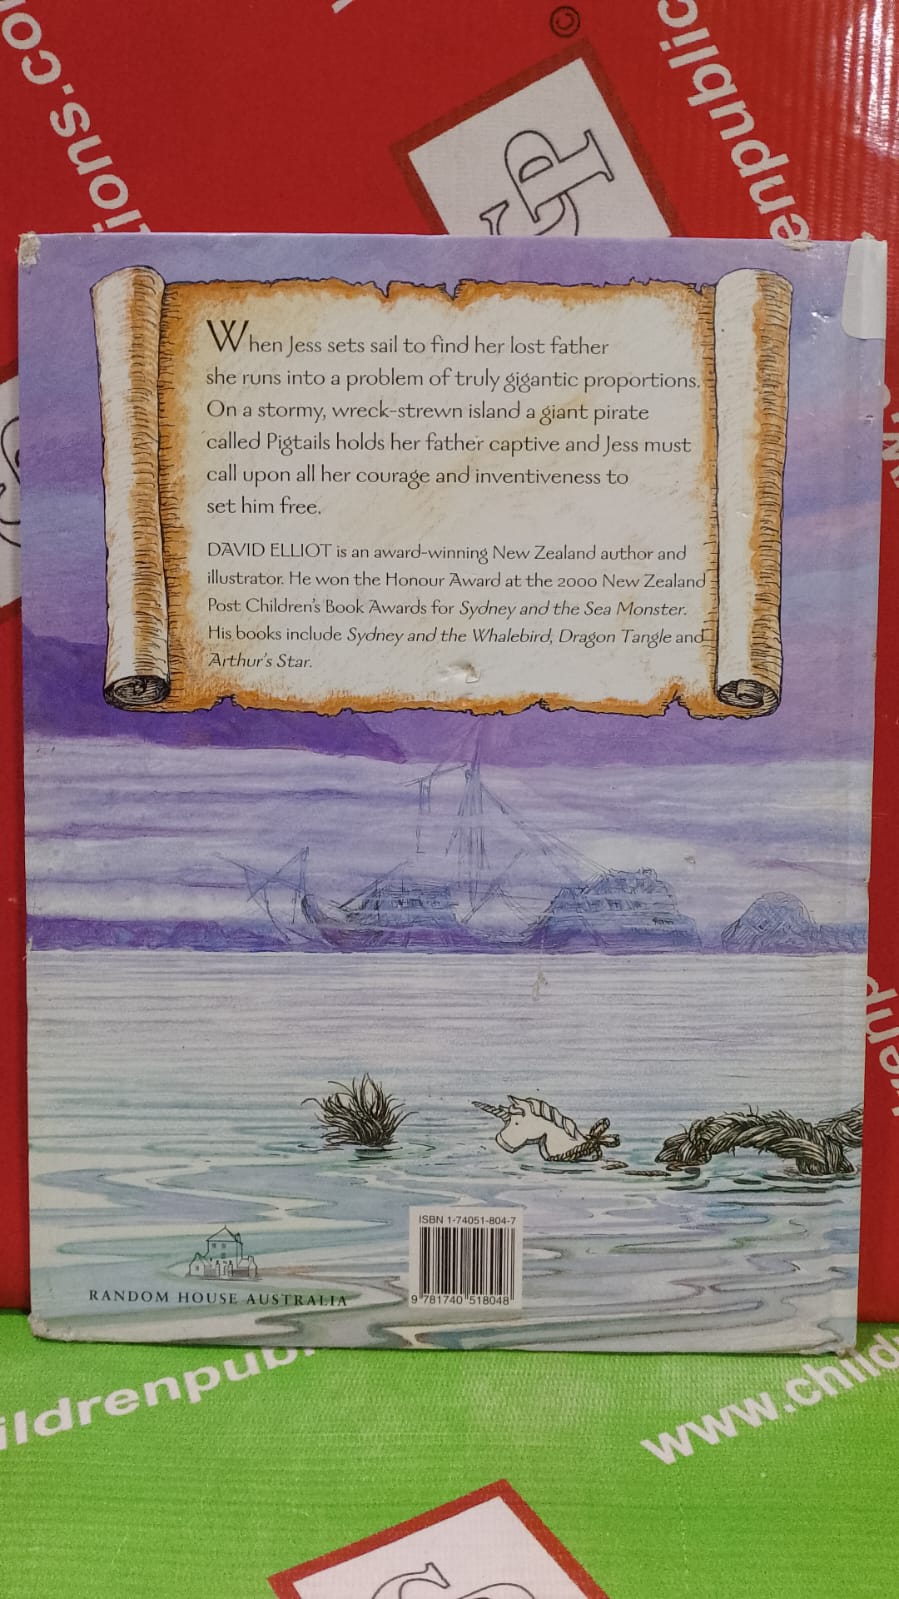 ions.co
©
enpublic
CP
When Jess sets sail to find her lost father
she runs into a problem of truly gigantic proportions.
On a stormy, wreck-strewn island a giant pirate
called Pigtails holds her father captive and Jess must
call upon all her courage and inventiveness to
set him free.
DAVID ELLIOT is an award-winning New Zealand author and
illustrator. He won the Honour Award at the 2000 New Zealand
Post Children's Book Awards for Sydney and the Sea Monster.
His books include Sydney and the Whalebird, Dragon Tangle and
Arthur's Star.
ISBN 1-74051-804-7
9 781740 518048
RANDOM HOUSE AUSTRALIA
ildrenpubl
www.child